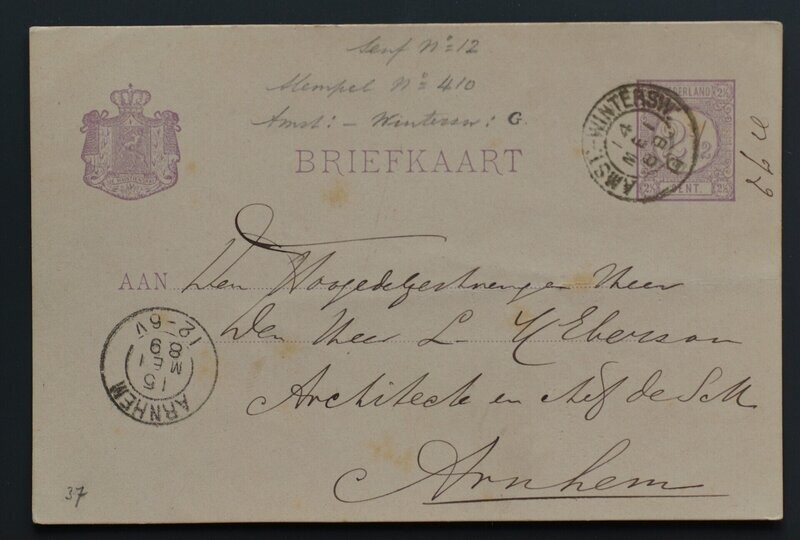 Senf No 12
Stempel No 410
Amst: - Wintersw: G.
BRIEFKAART
NEDERLAND
2½
CENT.
AMST-WINTERSW.
14 MEI
AAN Den Hoogedelgestrengen Heer
Den Heer L. H Eberson
Architecte en Chef de S.M
Arnhem
ARNHEM
15
MEI
89
12-6V
37